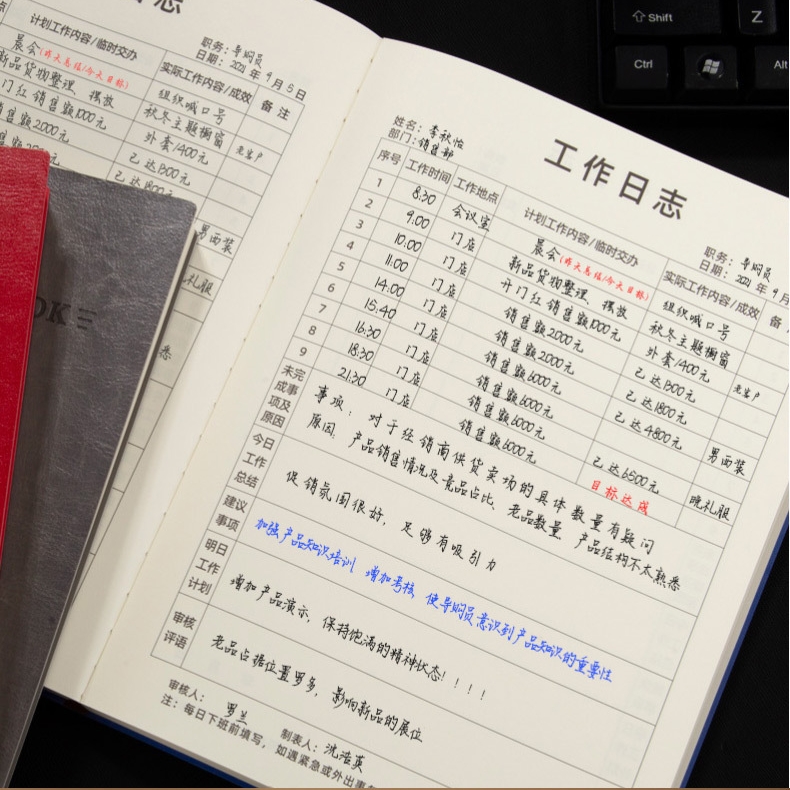 志
计划工作内容/临时交办
职务：导购员
日期：2021年9月5日
实际工作内容/成效 备注
晨会(昨天总结/今天目标)
组织喊口号
新品货物整理、摆放
秋冬主题橱窗
门红 销售额1000元
外套/400元 老客户
销售额2000元
已达1300元
已达1800元
男西装
礼服
悉
OK
Shift
Z
Ctrl
Alt
工作日志
姓名：李秋怡
部门：销售部
职务：导购员
日期：2021年9月
序号 工作时间 工作地点 计划工作内容/临时交办 实际工作内容/成效 备
1 8:30 会议室 晨会(昨天总结/今天目标) 组织喊口号
2 9:00 门店 新品货物整理、摆放 秋冬主题橱窗
3 10:00 门店 开门红 销售额1000元 外套/400元 老客户
4 11:00 门店 销售额2000元 已达1300元
5 14:00 门店 销售额2000元 已达1800元
6 15:40 门店 销售额6000元 已达4800元 男西装
7 16:30 门店 销售额6000元
8 18:30 门店 销售额6000元 已达6500元
9 21:30 门店 销售额6000元 目标达成 晚礼服
未完成事项及原因
事项：对于经销商供货卖场的具体数量有疑问
原因：产品销售情况及竞品占比、老品数量 产品结构不太熟悉
今日工作总结
促销氛围很好，足够有吸引力
建议事项
加强产品知识培训 增加考核 使导购员意识到产品知识的重要性
明日工作计划
增加产品演示，保持饱满的精神状态！！！！
审核评语
老品占据位置罗多，影响新品的展位
审核人：罗兰
制表人：沈浩英
注：每日下班前填写，如遇紧急或外出事